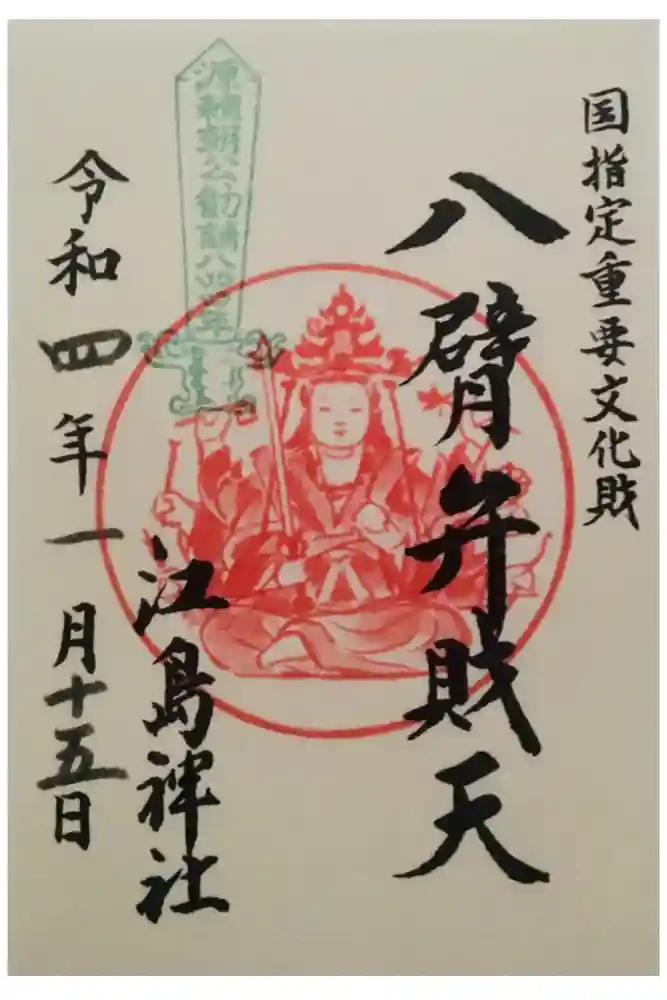 国指定重要文化財
八臂弁財天
源頼朝公勧請八四〇年
江島神社
令和四年一月十五日